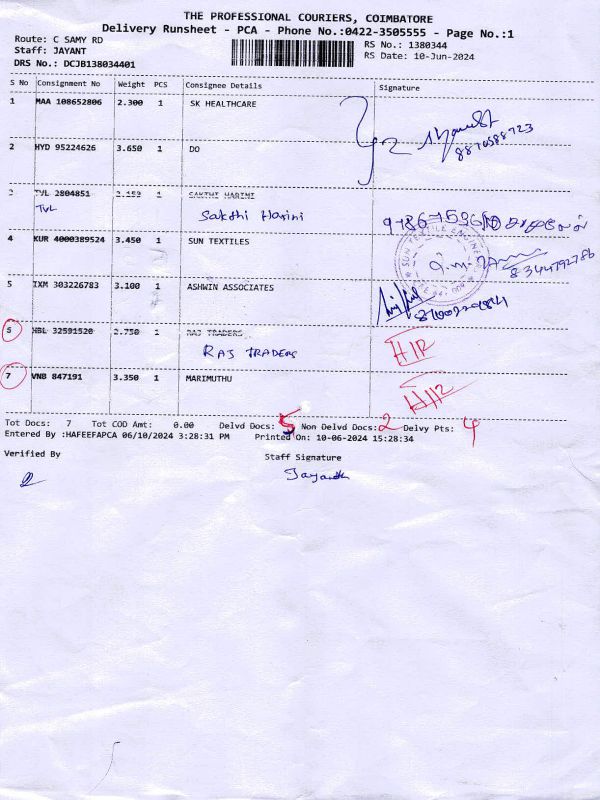 THE PROFESSIONAL COURIERS, COIMBATORE
Delivery Runsheet - PCA - Phone No.:0422-3505555 - Page No.:1
Route: C SAMY RD
RS No.: 1380344
Staff: JAYANT
RS Date: 10-Jun-2024
DRS No.: DCJB138034401
S No Consignment No Weight PCS Consignee Details Signature
1 MAA 108652806 2.300 1 SK HEALTHCARE
8870588723
2 HYD 95224626 3.650 1 DO
3 TVL 2804851 2.153 1 SAKTHI HARINI
TVL Sakthi Harini
4 KUR 4000389524 3.450 1 SUN TEXTILES
8344792786
5 IXM 303226783 3.100 1 ASHWIN ASSOCIATES
6 HBL 32591520 2.750 1 RAJ TRADERS
RAJ TRADERS
7 VNB 847191 3.350 1 MARIMUTHU
Tot Docs: 7 Tot COD Amt: 0.00 Delvd Docs: 5 Non Delvd Docs: 2 Delvy Pts: 4
Entered By :HAFEEFAPCA 06/10/2024 3:28:31 PM Printed On: 10-06-2024 15:28:34
Verified By Staff Signature
Jayanth